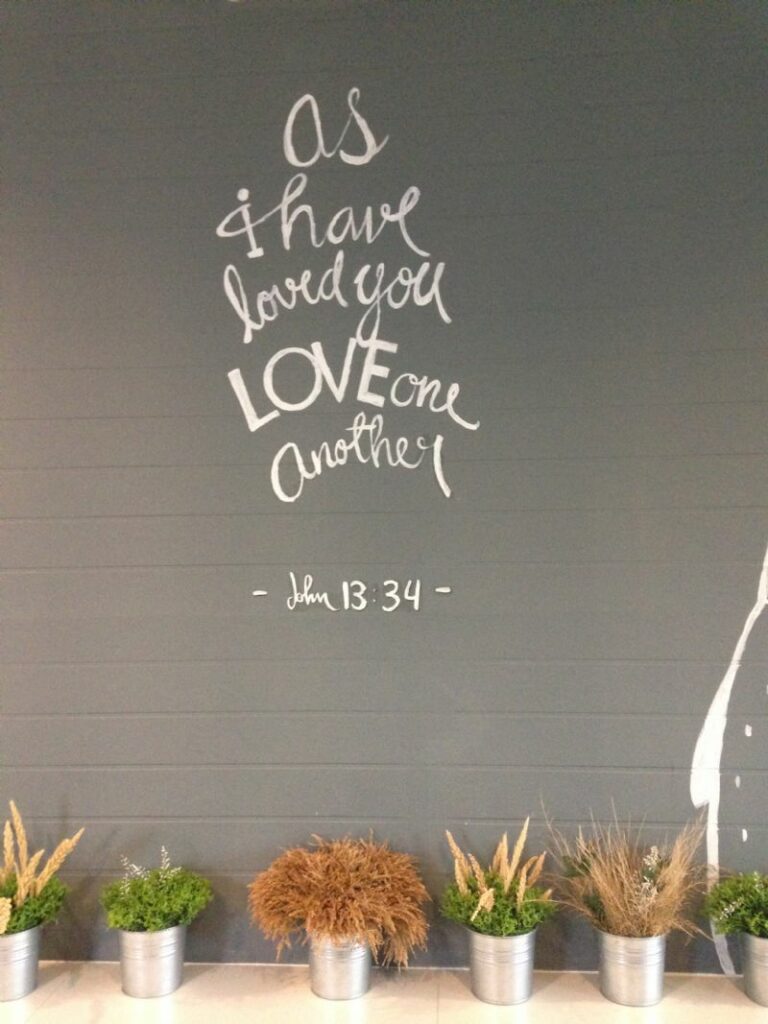 as
i have
loved you
LOVE one
another
- John 13:34 -